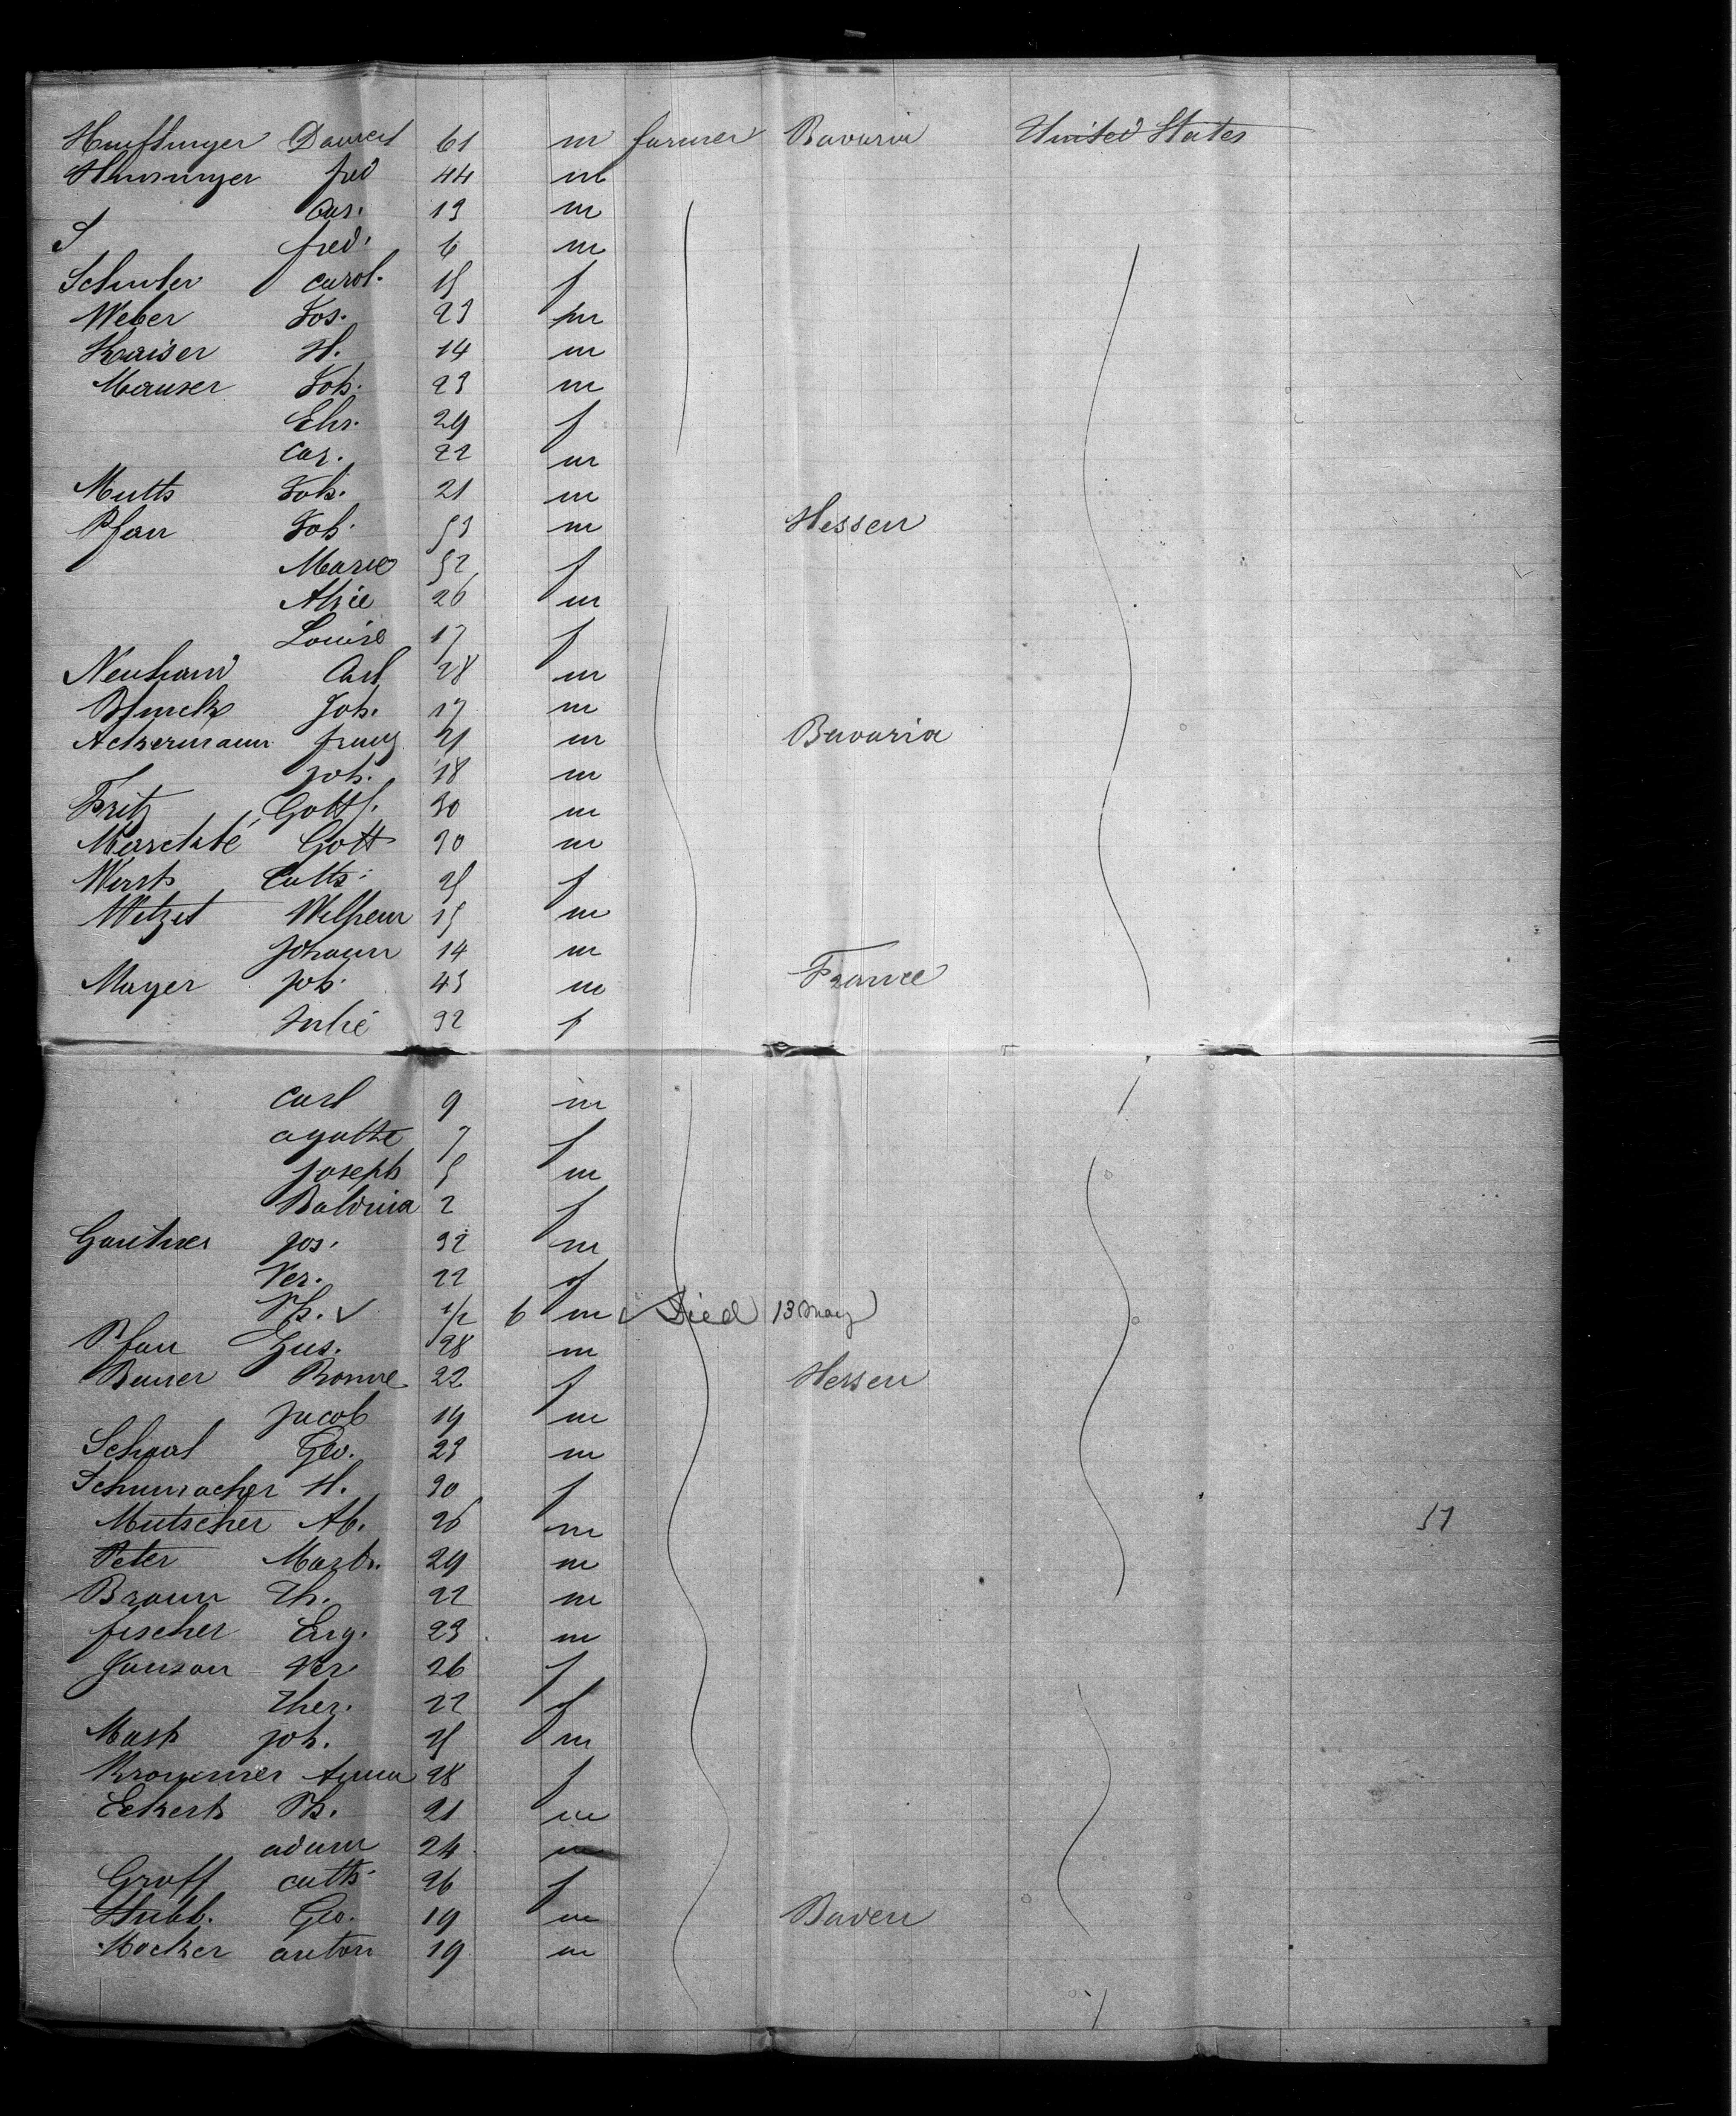 Daniel 61 m farmer Bavaria United States
fred 44 m
Car. 13 m
S fred. 6 m
carol. 15 f
Weber Jos. 23 m
Kaiser H. 14 m
Mauser Joh. 23 m
Chr. 29 f
Car. 22 m
Muth Joh. 21 m
Pfan Joh. 53 m Hessen
Marie 52 f
26 m
Louise 17 f
Carl 28 m
Joh. 17 m
Ackermann franz 21 m Bavaria
Joh. 18 m
Fritz Gottl. 30 m
Gott 30 m
Cath. 25 f
Wetzel Wilhelm 15 m
Johann 14 m
Mayer Joh. 43 m France
Julie 32 f
Carl 9 m
agathe 7 f
Joseph 5 m
Balvina 2 f
Gautner Jos. 32 m
Ver. 22 f
Ph. 1/2 6 m Died 13 May
Pfan Gus. 28 m
Bauer 22 f Hessen
Jacob 19 m
Schaal Geo. 23 m
Schumacher H. 30 f
Mutscher Ab. 26 m 51
Peter Mart. 29 m
Braun Th. 22 m
fischer Eug. 23 m
Janson Ver 26 f
Ther. 22 f
Mast Joh. 25 m
Krommer Anna 28 f
Eckert Ph. 21 m
adam 24 m
Graff cath. 26 f
Geo. 19 m Baden
Mocker anton 19 m